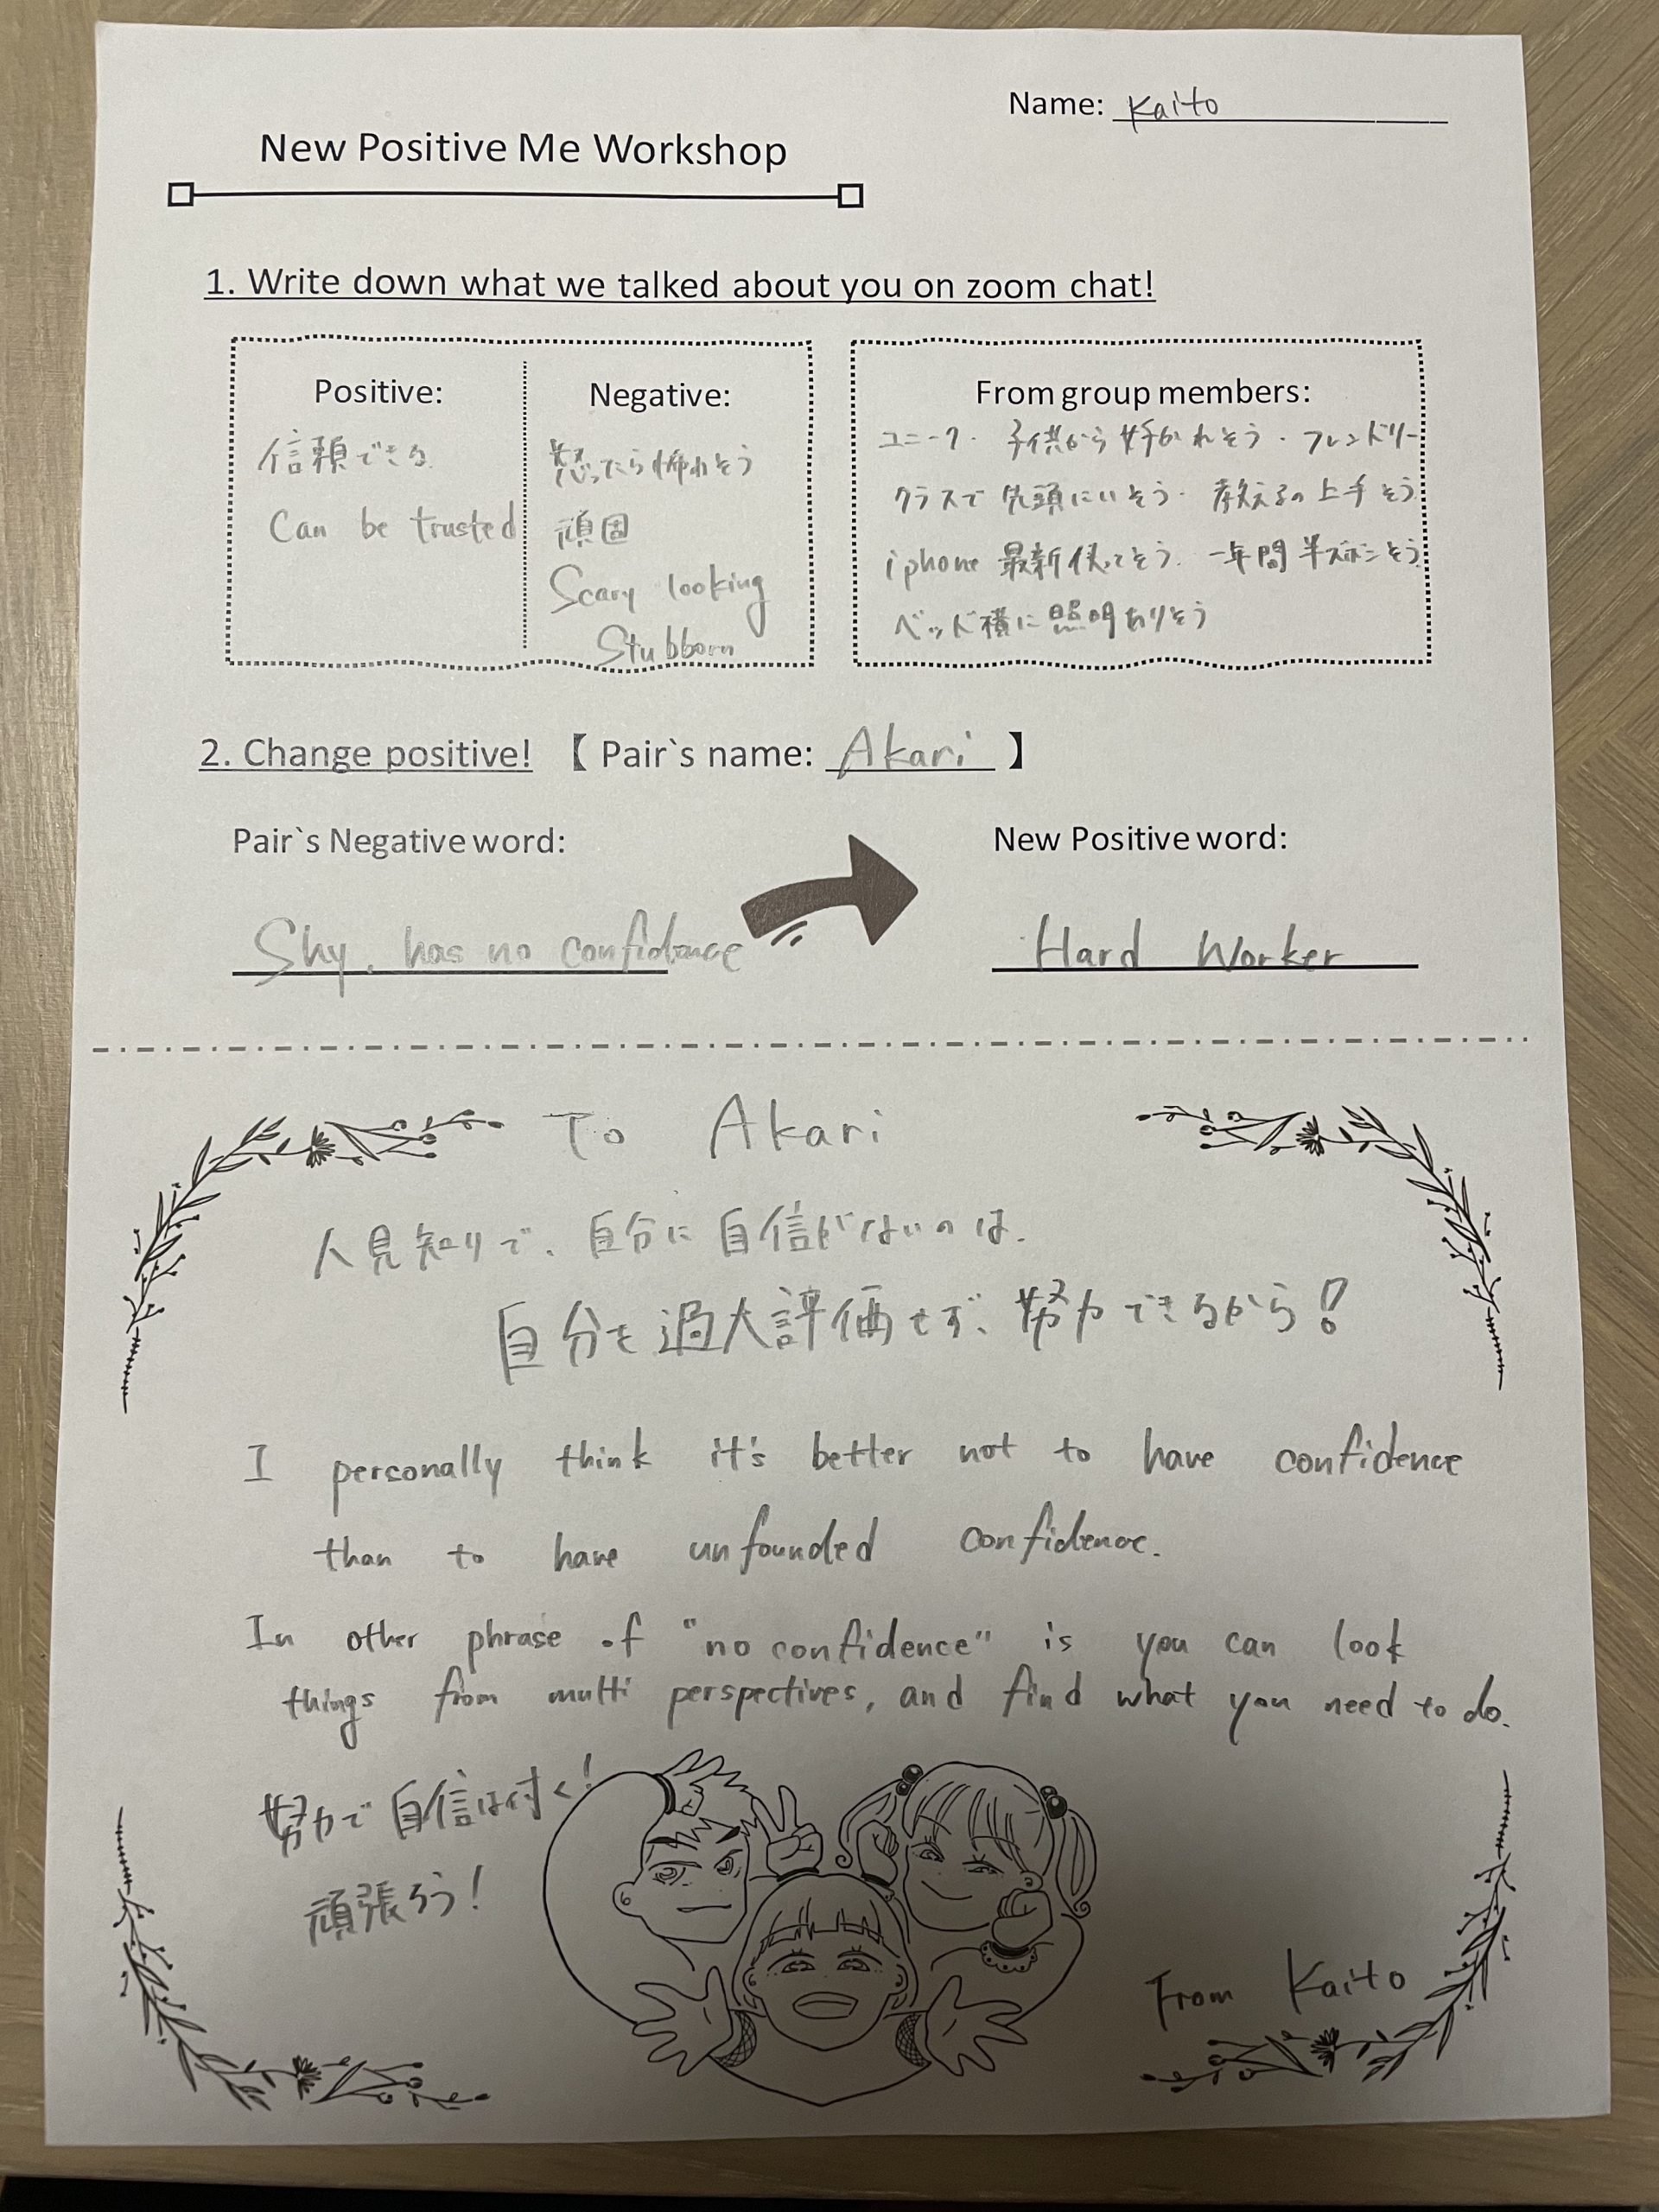 Name: Kaito
New Positive Me Workshop
1. Write down what we talked about you on zoom chat!
Positive:
信頼できる
Can be trusted
Negative:
怒ったら怖わそう
頑固
Scary looking
Stubborn
From group members:
ユニーク・子供から好かれそう・フレンドリー
クラスで先頭にいそう・教えるの上手そう
iphone最新使ってそう・一年間半ズボンそう
ベッド横に照明ありそう
2. Change positive! 【 Pair`s name: Akari 】
Pair`s Negative word:
Shy, has no confidence
New Positive word:
Hard Worker
To Akari
人見知りで、自分に自信がないのは、
自分を過大評価せず、努力できるから!
I personally think it's better not to have confidence
than to have unfounded confidence.
In other phrase of "no confidence" is you can look
things from multi perspectives, and find what you need to do.
努力で自信は付く!
頑張ろう!
From Kaito